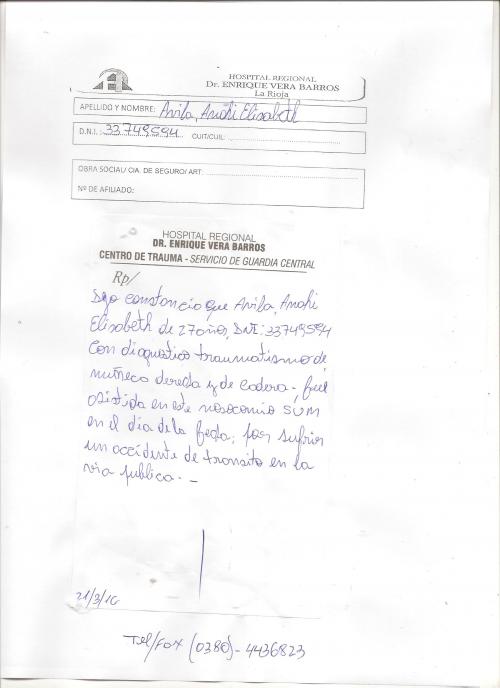 HOSPITAL REGIONAL
Dr. ENRIQUE VERA BARROS
La Rioja
APELLIDO Y NOMBRE: Avila, Anahi Elisabeth
D.N.I.: 33749594 CUIT/CUIL:
OBRA SOCIAL/ CIA. DE SEGURO/ ART:
Nº DE AFILIADO:
HOSPITAL REGIONAL
DR. ENRIQUE VERA BARROS
CENTRO DE TRAUMA - SERVICIO DE GUARDIA CENTRAL
Rp/
Dejo constancia que Avila, Anahi
Elisabeth de 27 años, DNI: 33749594
con diagnostico traumatismo de
muñeca derecha y de cadera-, fue
asistida en este nosocomio SUM
en el dia de la fecha; por sufrir
un accidente de transito en la
via publica. -
21/3/16
Tel/FOX (0380)- 4436823